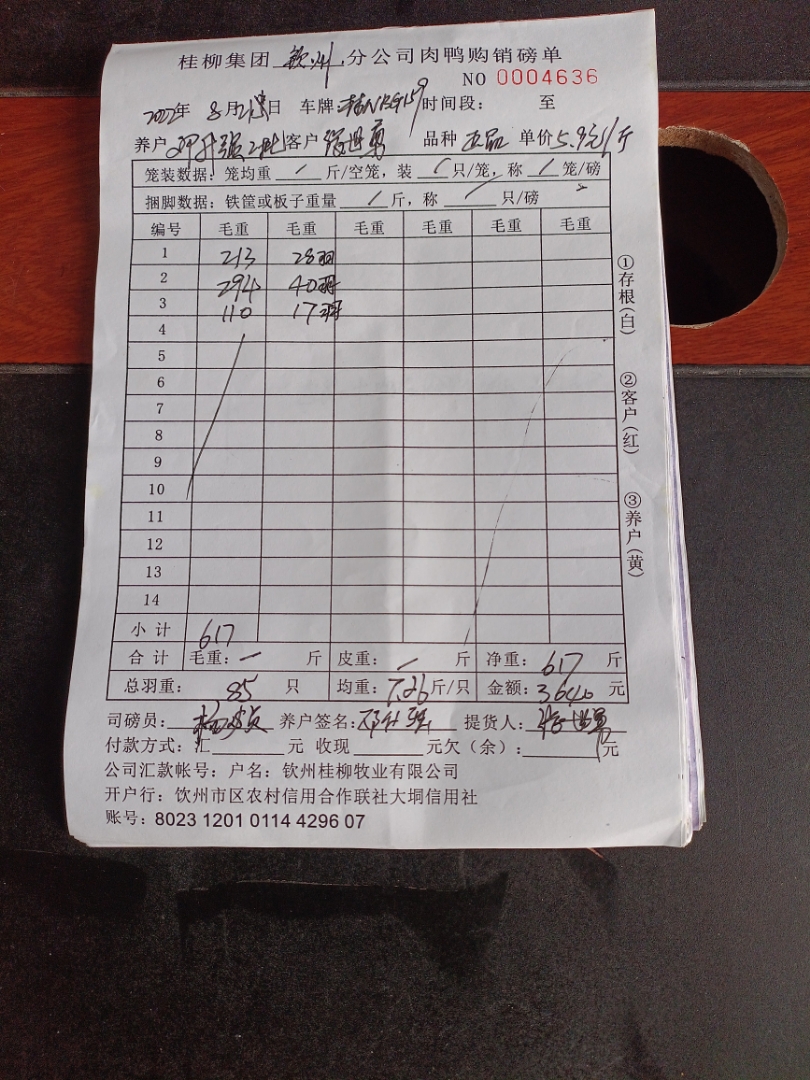 桂柳集团 钦州 分公司肉鸭购销磅单
NO 0004636
2022年 8月 日 车牌: 时间段: 至
养户 客户 品种 正品 单价5.9元/斤
笼装数据: 笼均重 / 斤/空笼, 装 / 只/笼, 称 / 笼/磅
捆脚数据: 铁筐或板子重量 / 斤, 称 / 只/磅
编号 毛重 毛重 毛重 毛重 毛重 毛重
1 213 28羽
2 294 40羽
3 110 17羽
4
5
6
7
8
9
10
11
12
13
14
小计 617
合计 毛重: — 斤 皮重: — 斤 净重: 617 斤
总羽重: 85 只 均重: 7.26 斤/只 金额: 3640 元
司磅员: 养户签名: 提货人:
付款方式: 汇 元 收现 元欠(余): 元
公司汇款帐号: 户名: 钦州桂柳牧业有限公司
开户行: 钦州市区农村信用合作联社大垌信用社
账号: 8023 1201 0114 4296 07
①存根(白)
②客户(红)
③养户(黄)